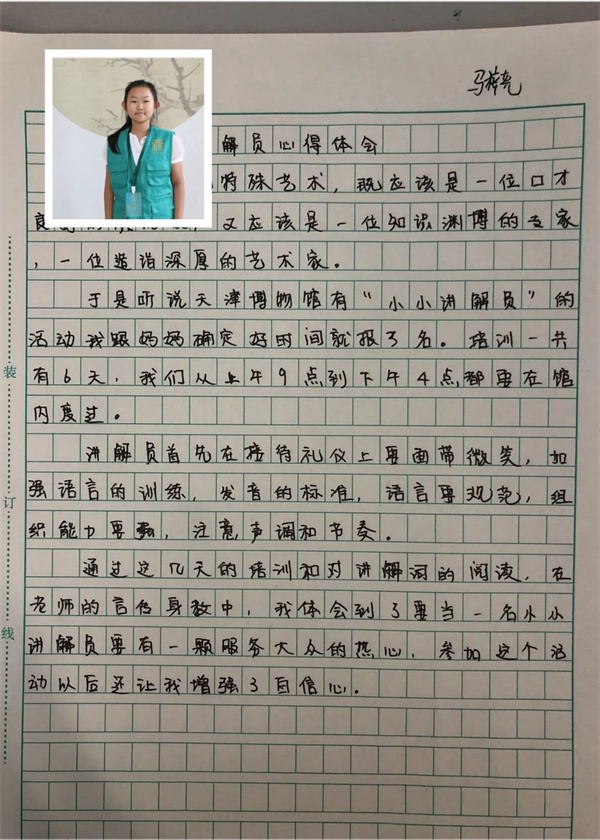 解员心得体会
特殊艺术，既应该是一位口才
又应该是一位知识渊博的专家
，一位造诣深厚的艺术家。
于是听说天津博物馆有“小小讲解员”的
活动我跟妈妈确定好时间就报了名。培训一共
有6天，我们从上午9点到下午4点都要在馆
内度过。
讲解员首先在接待礼仪上要面带微笑，加
强语言的训练，发音的标准，语言要规范，组
织能力要强，注意声调和节奏。
通过这几天的培训和对讲解词的阅读，在
老师的言传身教中，我体会到了要当一名小小
讲解员要有一颗服务大众的热心，参加这个活
动以后还让我增强了自信心。
装
订
线